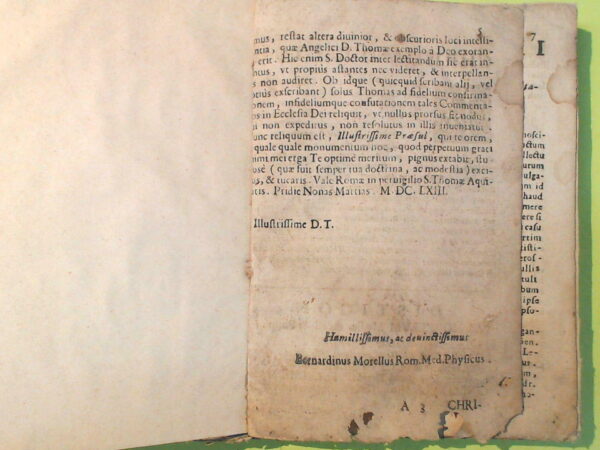 5
mus, restat altera diuinior, & obscurioris loci intelli-
ntia, quæ Angelici D. Thomæ exemplo à Deo exoran-
erit. Hic enim S. Doctor inter lectitandum sic erat in-
ntus, vt propiùs astantes nec videret, & interpellan-
non audiret. Ob idque (quicquid scribant alij, vel
exscribant) solus Thomas ad fidelium confirma-
onem, infideliumque confutationem tales Commenta-
os in Ecclesia Dei reliquit, vt nullus prorsus sit nodus,
non expeditus, non resolutus in illis inueniatur.
unc reliquum est, Illustrissime Præsul, qui te orem,
quale quale monumentum hoc, quod perpetuum grati
nimi mei erga Te optimè meritum, pignus extabit, stu-
osè (quæ fuit semper tua doctrina, ac modestia) exci-
as, & tucaris. Vale Romæ in peruigilio S. Thomæ Aqui-
atis. Pridie Nonas Martias. M. DC. LXIII.
Illustrissime D. T.
Humillissimus, ac deuinctissimus
Bernardinus Morellus Rom. Med. Physicus.
A 3 CHRI-
7
I
sa-
nosci-
octum
ellectu
urum
ulga-
um id
haud
mere
ere si
casu
rtim
tisti-
eros-
ullis
tult
bum
ipse
psu-
gan-
en-
Le-
xx.
dr.
a-